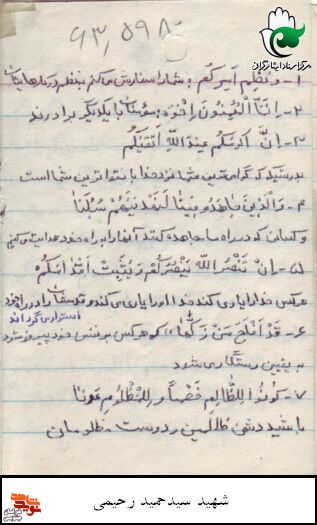 ۶۳٫۵۹۸
مرکز اسناد ایثارگران
۱- وَ نَظمِ اَمرِکُم : شما را سفارش می کنم به نظم در کارهایتان
۲- اِنَّمَا المُؤمِنُونَ اِخوَه : مؤمنان با یکدیگر برادرند
۳- اِنَّ اَکرَمَکُم عِندَ اللهِ اَتقَیکُم
بدرستیکه گرامی ترین شما نزد خدا با تقواترین شما است
۴- وَالَّذِینَ جاهَدُو فِینا لَنَهدِیَنَهُم سُبُلَنا
و کسانی که در راه ما مجاهده کنند آنها را به راه خود هدایت می کنیم
۵- اِن تَنصُرُ اللهَ یَنصُرکُم وَ یُثَبِّت اَقدامَکُم
هرکس خدا را یاری کند خدا او را یاری می کند و قدمهایش را در راه خود
استوار می گرداند
۶- قَد اَفلَحَ مَن زَکّها : که هرکس بر نفس خود پیروز شود
به یقین رستگار می شود
۷- کُونُوا لِلظّالِمِ خَصماً وَ لِلمَظلُومِ عَونا
باشید دشمن ظالمین و دوست مظلومان
شهید سیدحمید رحیمی
نوید شاهد